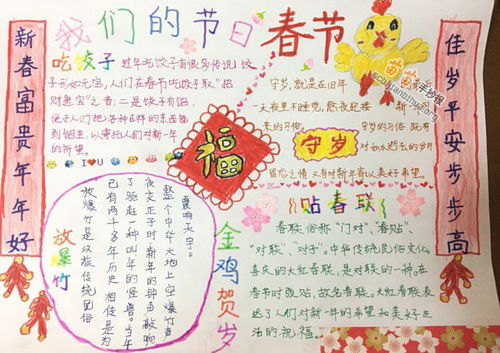 我们的节日 春节
新春富贵年年好
佳岁平安步步高
吃饺子
过年吃饺子有很多传说 饺
子形如元宝,人们在春节吃饺子取"招
财进宝"之音;二是饺子有馅
便于人们把各种吉祥的东西包
到馅里,以寄托人们对新一年
的祈望。
I ❤ U
守岁,就是在旧年
一天夜里不睡觉,熬夜迎接 新
来的习俗 守岁的习俗,既有
对如水逝去的岁月
留恋之情 又有对新年寄以美好希望。
守岁
福
贴春联
春联 俗称"门对"、"春贴"、
"对联"、"对子"。中华传统民俗文化。
喜庆的大红春联,是对联的一种。在
春节时张贴,故名春联。大红春联表
达了人们对新一年的希望和美好生
活的祝福。
金鸡贺岁
放爆竹
放爆竹是汉族传统民俗
已有两千多年历史 相传是为
了驱赶一种叫年的怪兽。当午
夜交正子时 新年的钟声敲响
整个中华大地上空 爆竹声
震响天宇。
苗苗手抄报